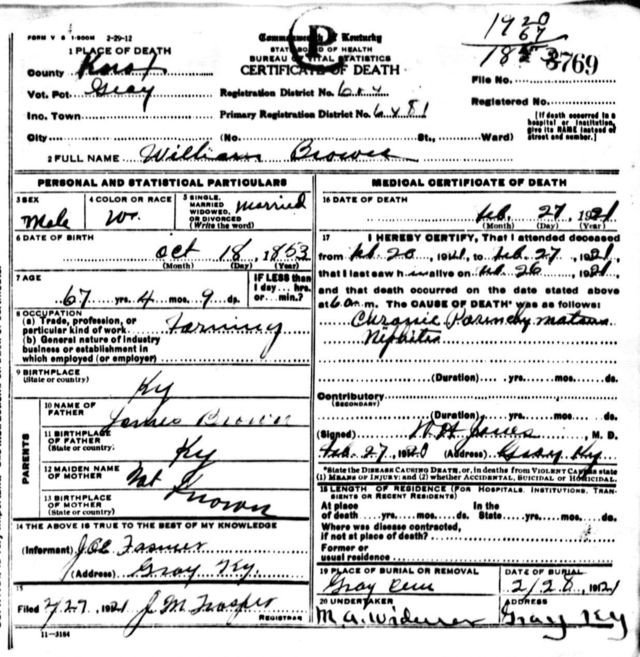 FORM V S 1-500M 2-29-12
1920
67
18
3769
P
1 PLACE OF DEATH
Commonwealth of Kentucky
STATE BOARD OF HEALTH
BUREAU OF VITAL STATISTICS
CERTIFICATE OF DEATH
County Knox
Vot. Pct Gray
Registration District No.
File No.
Inc. Town
Primary Registration District No. 6481
Registered No.
City (No. St., Ward)
[If death occurred in a hospital or institution, give its NAME instead of street and number.]
2 FULL NAME William Brown
PERSONAL AND STATISTICAL PARTICULARS
3 SEX Male
4 COLOR OR RACE W
5 SINGLE, MARRIED WIDOWED, OR DIVORCED (Write the word) Married
6 DATE OF BIRTH Oct 18, 1853
(Month) (Day) (Year)
7 AGE 67 yrs. 4 mos. 9 ds.
IF LESS than 1 day ... hrs. or ... min.?
8 OCCUPATION
(a) Trade, profession, or particular kind of work Farming
(b) General nature of industry business or establishment in which employed (or employer)
9 BIRTHPLACE (State or country) Ky
PARENTS
10 NAME OF FATHER James Brown
11 BIRTHPLACE OF FATHER (State or country) Ky
12 MAIDEN NAME OF MOTHER Not
13 BIRTHPLACE OF MOTHER (State or country) Known
14 THE ABOVE IS TRUE TO THE BEST OF MY KNOWLEDGE
(Informant) Farmer
(Address) Gray Ky.
15
Filed 2/27, 1921 J M
REGISTRAR
11-3184
MEDICAL CERTIFICATE OF DEATH
16 DATE OF DEATH Feb. 27, 1921
(Month) (Day) (Year)
17 I HEREBY CERTIFY, That I attended deceased
from Feb. 20, 1921, to Feb. 27, 1921,
that I last saw him alive on Feb. 26, 1921,
and that death occurred on the date stated above
at 6 a m. The CAUSE OF DEATH* was as follows:
Chronic
Nephitis
(Duration) yrs. mos. ds.
Contributory
(SECONDARY)
(Duration) yrs. mos. ds.
(Signed) Jones, M. D.
Feb. 27, 1920 (Address) Gray Ky
*State the DISEASE CAUSING DEATH, or, in deaths from VIOLENT CAUSES state (1) MEANS OF INJURY; and (2) whether ACCIDENTAL, SUICIDAL OR HOMICIDAL.
18 LENGTH OF RESIDENCE (FOR HOSPITALS, INSTITUTIONS, TRANSIENTS OR RECENT RESIDENTS)
At place of death yrs. mos. ds. In the State yrs. mos. ds.
Where was disease contracted, if not at place of death?
Former or usual residence
19 PLACE OF BURIAL OR REMOVAL Gray Cem
DATE OF BURIAL 2/28, 1921
20 UNDERTAKER M. A. Widener
ADDRESS Gray Ky